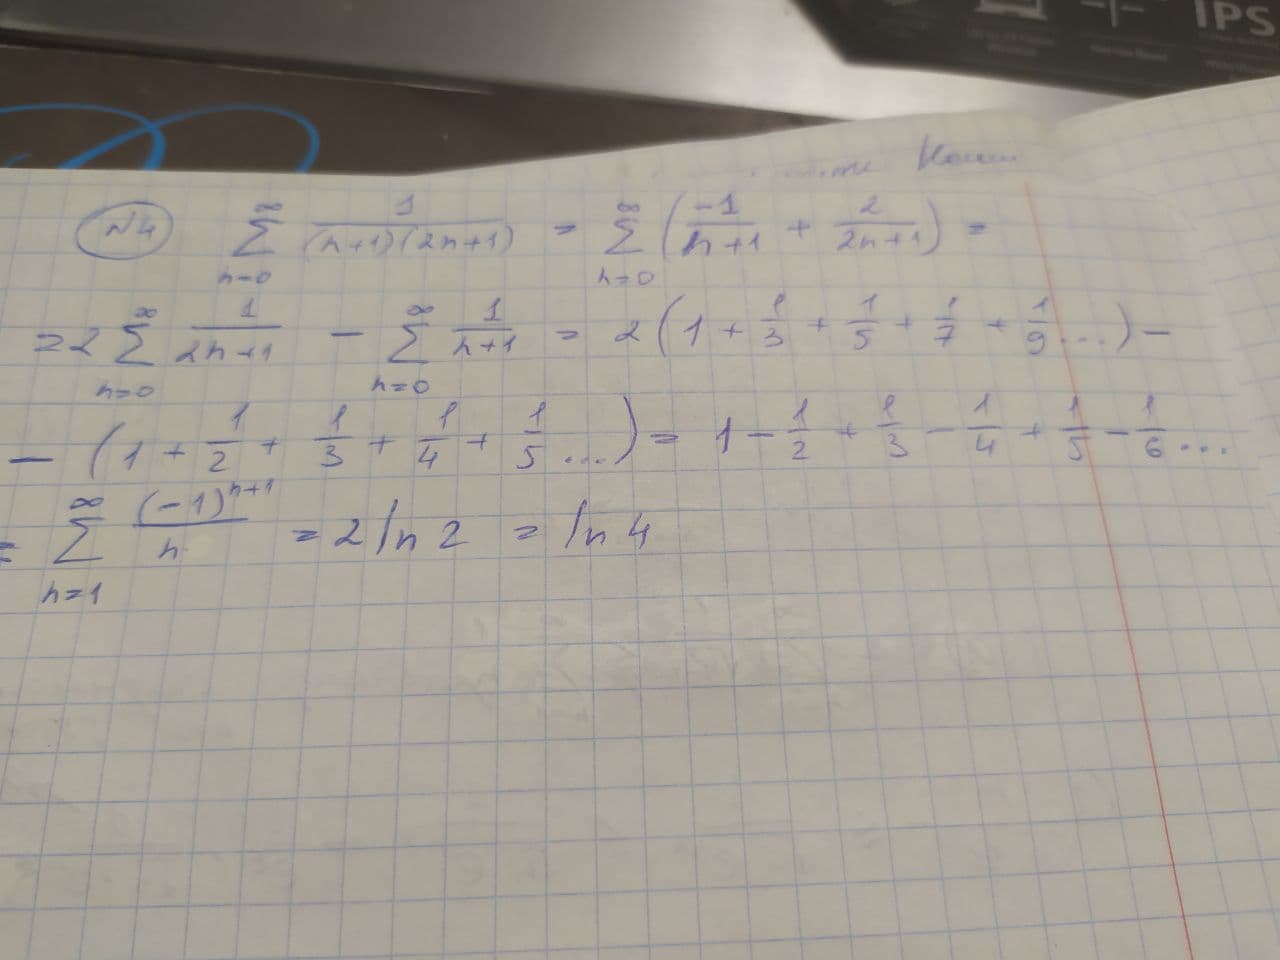 IPS
№4 ∞ ∑ n=0 1/((n+1)(2n+1)) = ∞ ∑ n=0 (-1/(n+1) + 2/(2n+1)) =
=2 ∞ ∑ n=0 1/(2n+1) - ∞ ∑ n=0 1/(n+1) = 2(1 + 1/3 + 1/5 + 1/7 + 1/9 ...) -
- (1 + 1/2 + 1/3 + 1/4 + 1/5 ...) = 1 - 1/2 + 1/3 - 1/4 + 1/5 - 1/6 ...
= ∞ ∑ n=1 (-1)^(n+1)/n = 2 ln 2 = ln 4